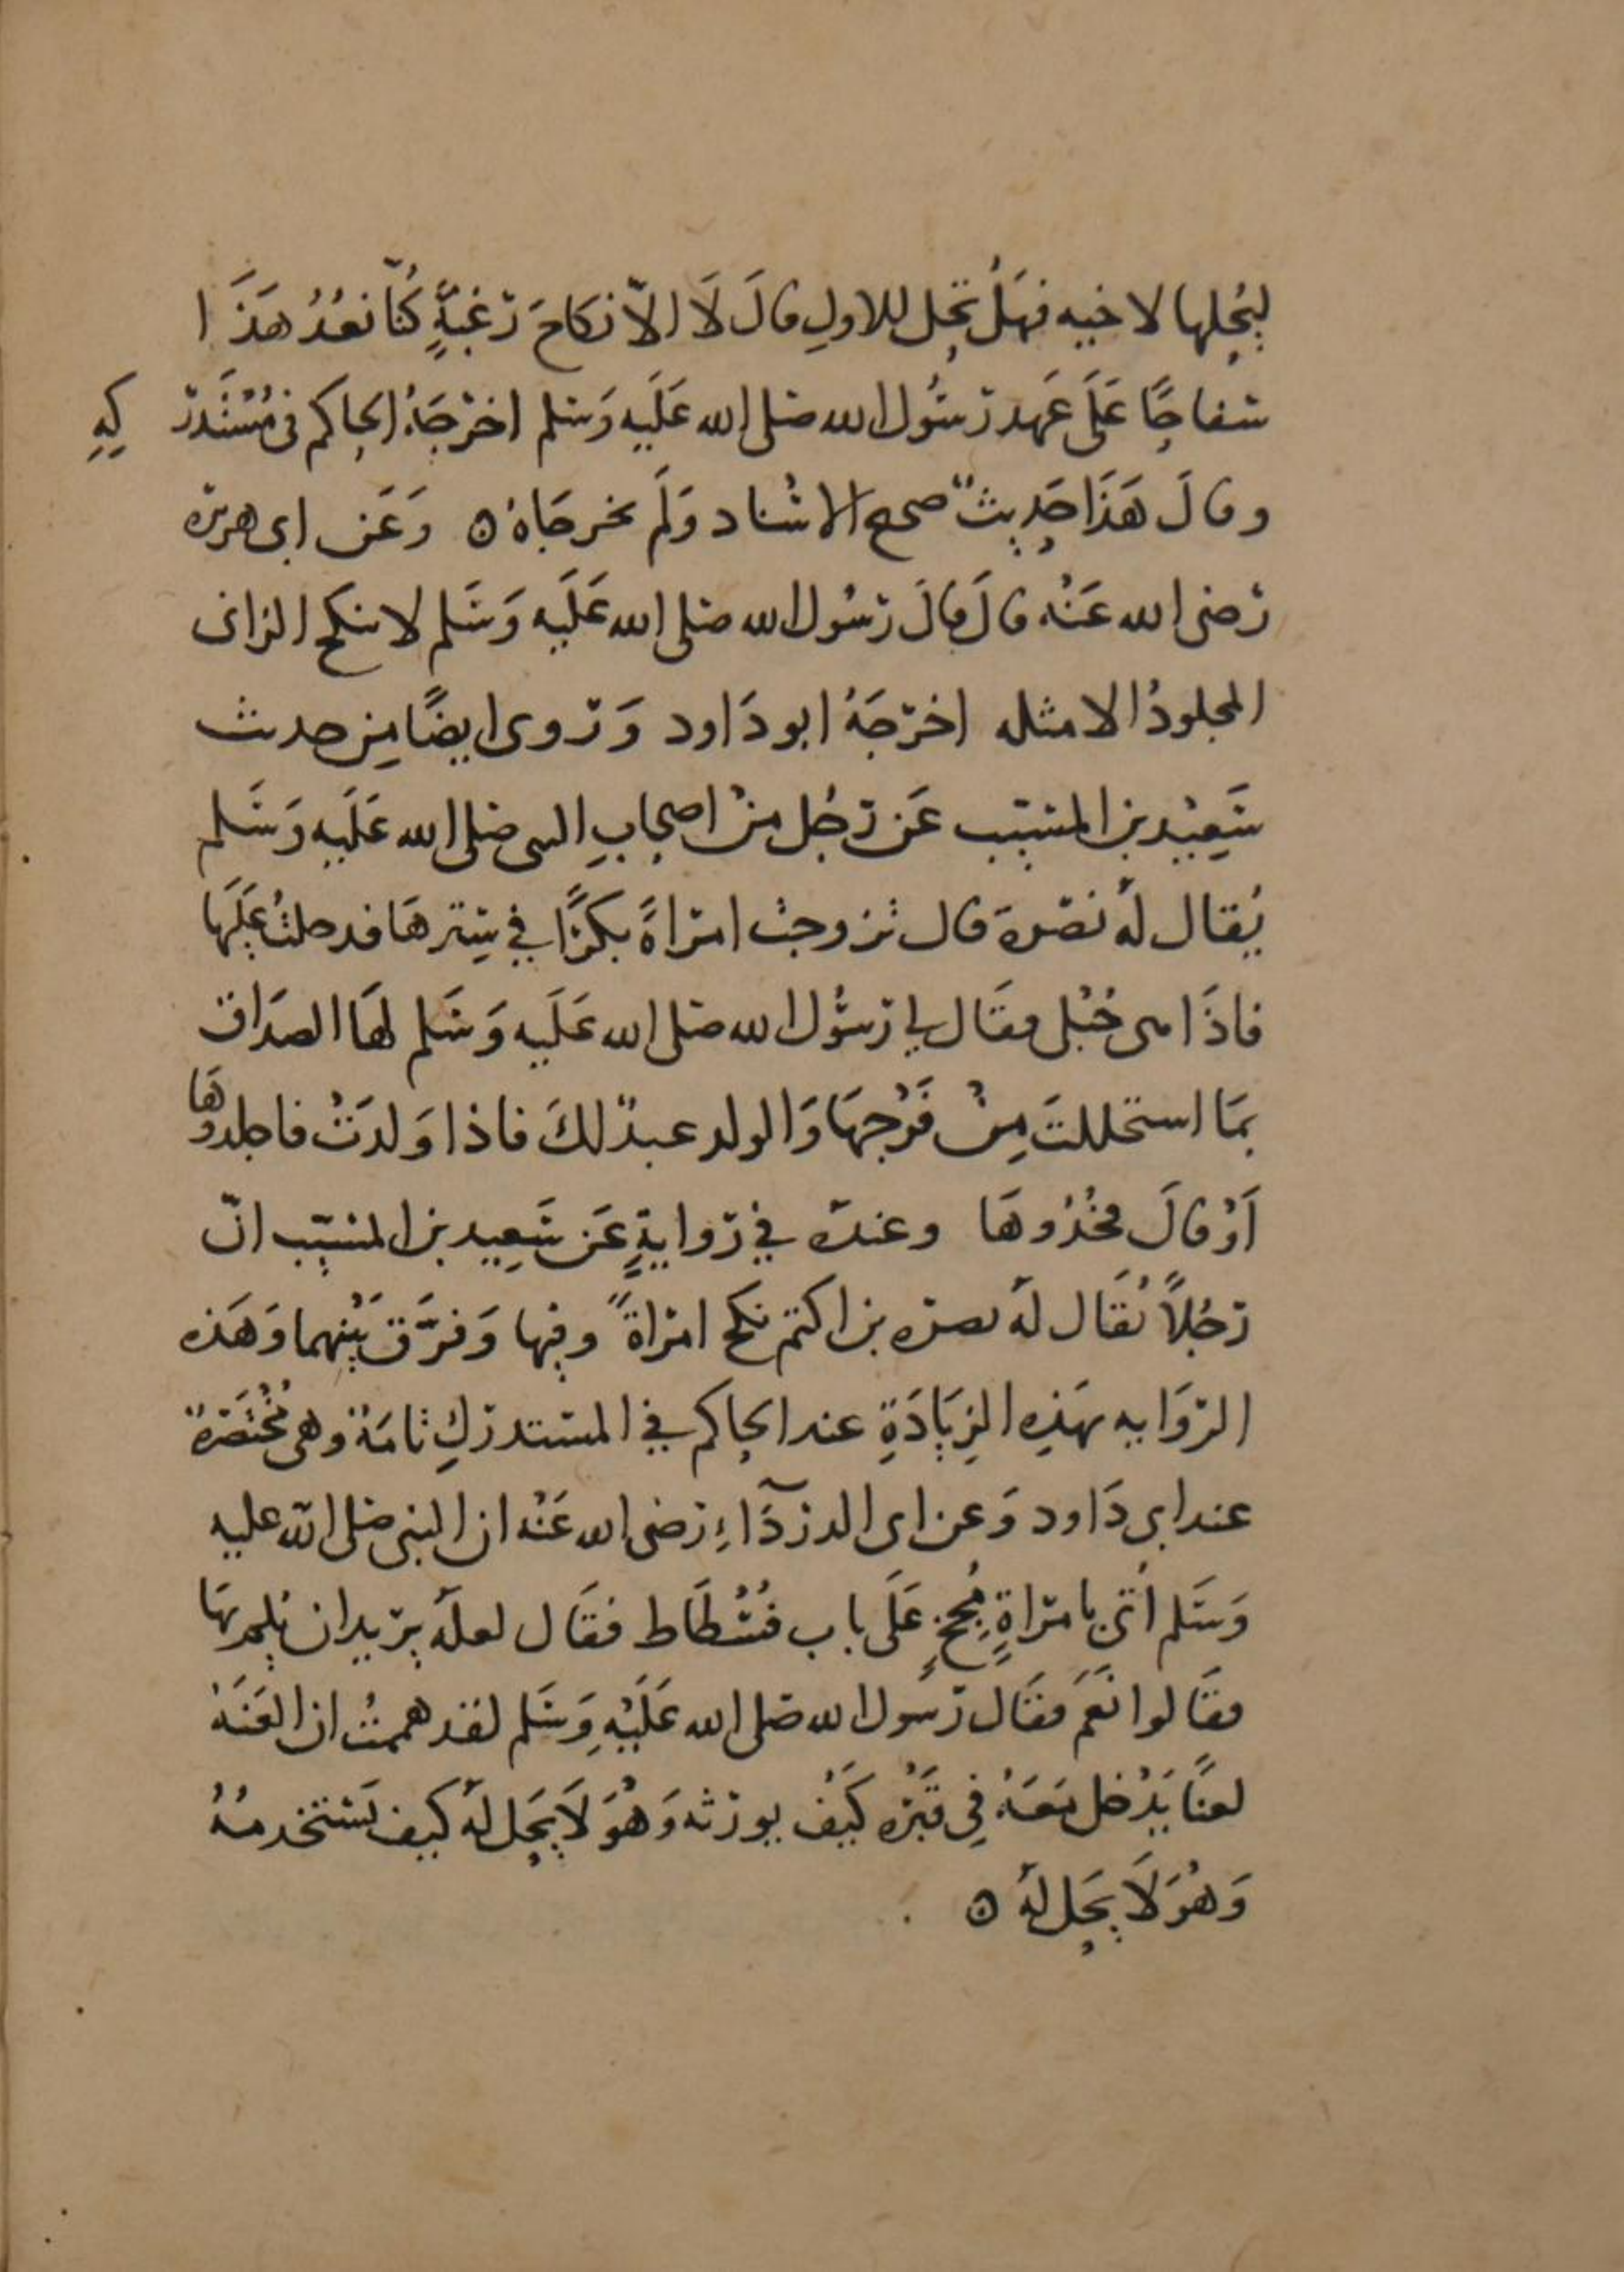 ليُحِلها لاخيه فهَلْ تحِل للاولِ قالَ لَا الّا نكَاحَ رَغبَةٍ كُنّا نعُدُ هَذَا
سفاحًا عَلَى عَهد رَسُول الله صَلى الله عَلَيه وَسَلم اخرَجَهُ الحاكم فى مُسْتَدرَكِهِ
وقالَ هَذَا حَدِيثٌ صحيح الاسْناد وَلَم يخرجَاهُ ۞ وَعَن ابى هريرة
رَضى الله عَنْه قالَ قالَ رَسُول الله صَلى الله عَلَيه وَسَلم لا ينكح الزانى
المجلودُ الا مثله اخرَجَهُ ابو دَاود وَرَوى ايضًا مِن حديث
سَعِيْد بن المسَيّب عَن رَجُل منْ اصحابِ النبى صَلى الله عَلَيه وَسَلم
يُقال لَهُ نصْرة قال تزوجتُ امرَاةً بكرًا في سِترهَا فدخلتُ عَلَيهَا
فاذَا هى حُبْلى فقَال لي رَسُول الله صَلى الله عَلَيه وَسَلم لهَا الصدَاق
بمَا استحللتَ مِنْ فَرْجهَا وَالولد عبدٌ لكَ فاذا وَلدَتْ فاجلدوهَا
اَوْ قالَ فخُذُوهَا وعنده في رَوايةٍ عَن سَعِيد بن المسَيّب انّ
رَجُلاً يُقَال لَهُ بصرَه بن اكتم نكح امرَاةً وفيها وَفرَّق بَيْنهما وَهَذه
الرّوَايه بهَذِه الزِيَادَةِ عند الحاكم في المستدرَكِ تامَةٌ وهى مُخْتَصَرةٌ
عند ابي دَاود وَعن ابى الدردَآءِ رَضى الله عَنْه ان النبى صَلى الله عليه
وَسَلم اُتى بامرَاةٍ مُجِحٍ عَلَى باب فُسْطَاط فقَال لعلهُ يرَيد ان يُلِم بهَا
فقَالوا نَعَمْ فقَال رَسُول الله صَلى الله عَلَيْهِ وَسَلم لقد هممتُ ان العَنَهُ
لعنًا يَدْخل مَعَهُ فِي قَبْرَه كَيْفَ يورَثه وَهُوَ لَا يحَِل لهُ كيف يستخدمُهُ
وَهُوَ لَا يحَِل لهُ ۞